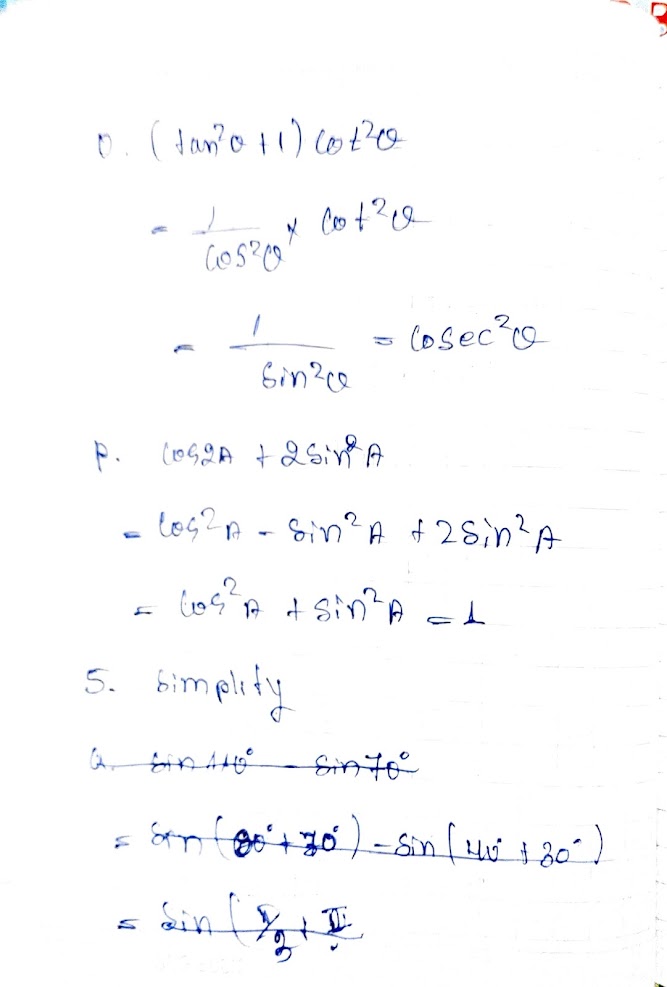 o. (tan²θ+1) cot²θ
= 1/cos²θ × cot²θ
= 1/sin²θ = cosec²θ
p. cos2A + 2sin²A
= cos²A - sin²A + 2sin²A
= cos²A + sin²A = 1
5. Simplify
a. sin 110° - sin 70°
= sin (80° + 30°) - sin (40° + 30°)
= sin (π/2 +